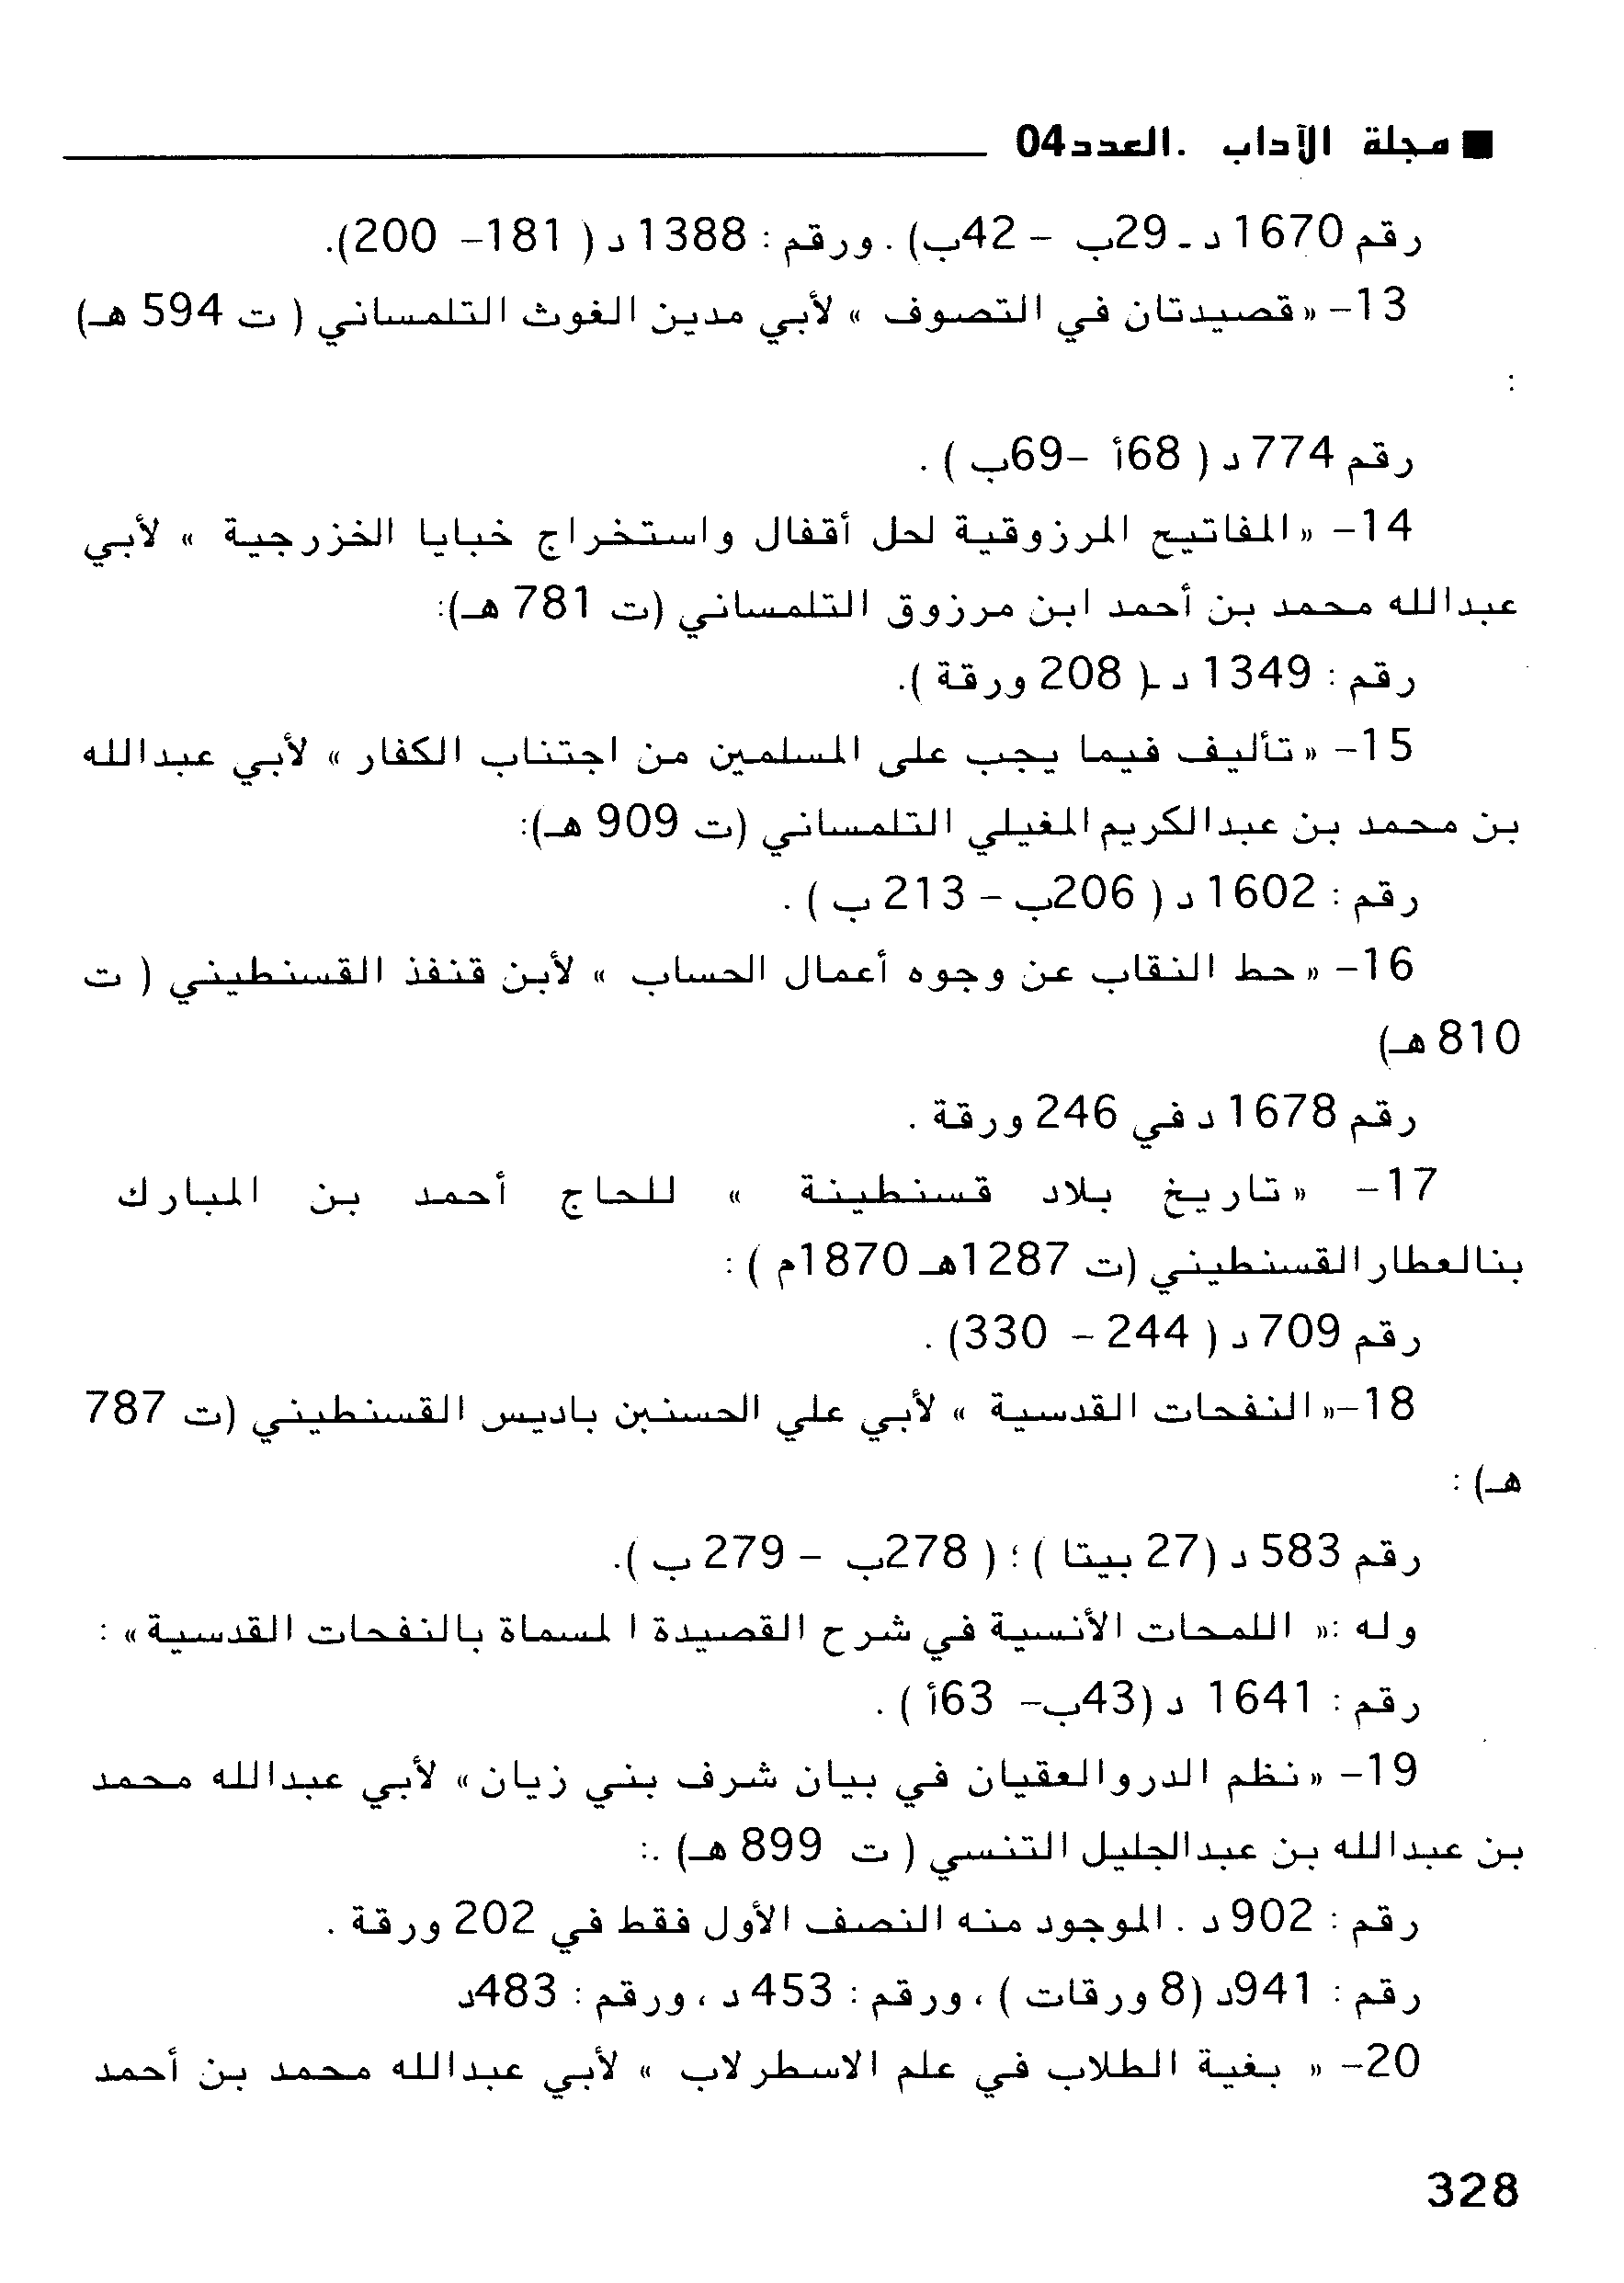 ■ مجلة الآداب .العدد04
رقم 1670 د ـ 29ب – 42ب) . ورقم : 1388 د ( 181– 200).
13– « قصيدتان في التصوف » لأبي مدين الغوث التلمساني ( ت 594 هـ)
:
رقم 774 د ( 68أ –69ب ) .
14– « المفاتيح المرزوقية لحل أقفال واستخراج خبايا الخزرجية » لأبي
عبدالله محمد بن أحمد ابن مرزوق التلمساني (ت 781 هـ):
رقم : 1349 د ـ( 208 ورقة ).
15– « تأليف فيما يجب على المسلمين من اجتناب الكفار » لأبي عبدالله
بن محمد بن عبدالكريم المغيلي التلمساني (ت 909 هـ):
رقم : 1602 د ( 206ب – 213 ب ) .
16– « حط النقاب عن وجوه أعمال الحساب » لأبن قنفذ القسنطيني ( ت
810 هـ)
رقم 1678 د في 246 ورقة .
17– « تاريخ بلاد قسنطينة » للحاج أحمد بن المبارك
بنالعطار القسنطيني (ت 1287هـ 1870م ) :
رقم 709 د ( 244 – 330) .
18–« النفحات القدسية » لأبي علي الحسنبن باديس القسنطيني (ت 787
هـ) :
رقم 583 د (27 بيتا ) ؛ ( 278ب – 279 ب ).
وله :« اللمحات الأنسية في شرح القصيدة ا لمسماة بالنفحات القدسية» :
رقم : 1641 د (43ب– 63أ ) .
19– « نظم الدر والعقيان في بيان شرف بني زيان» لأبي عبدالله محمد
بن عبدالله بن عبدالجليل التنسي ( ت 899 هـ) .:
رقم : 902 د . الموجود منه النصف الأول فقط في 202 ورقة .
رقم : 941د (8 ورقات ) ، ورقم : 453 د ، ورقم : 483د
20– « بغية الطلاب في علم الاسطرلاب » لأبي عبدالله محمد بن أحمد
328